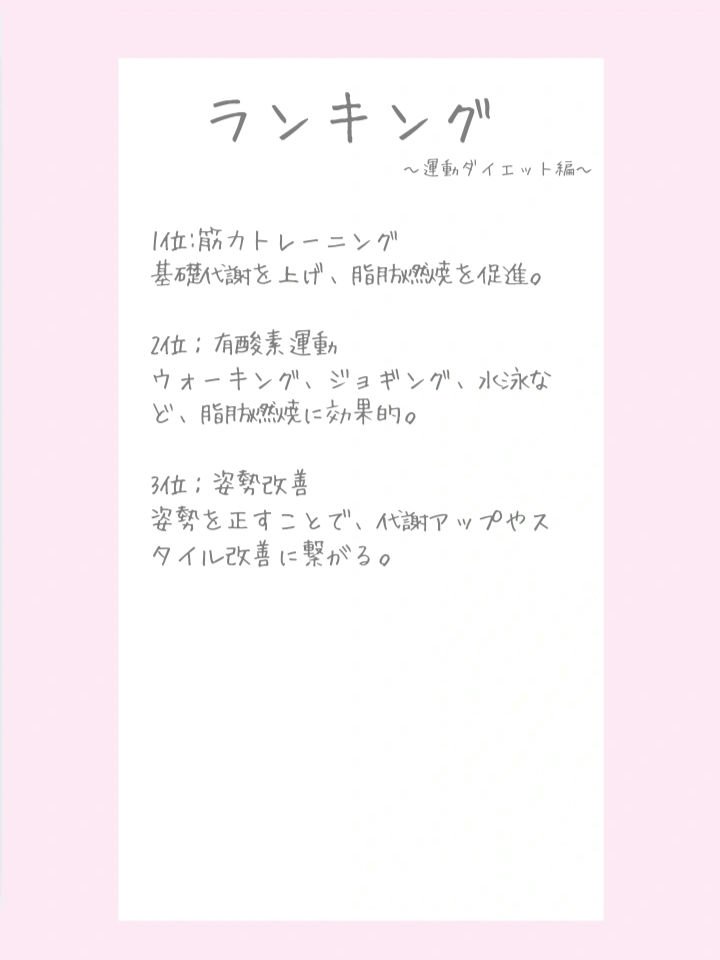 ランキング
～運動ダイエット編～
1位:筋力トレーニング
基礎代謝を上げ、脂肪燃焼を促進。
2位；有酸素運動
ウォーキング、ジョギング、水泳な
ど、脂肪燃焼に効果的。
3位；姿勢改善
姿勢を正すことで、代謝アップやス
タイル改善に繋がる。